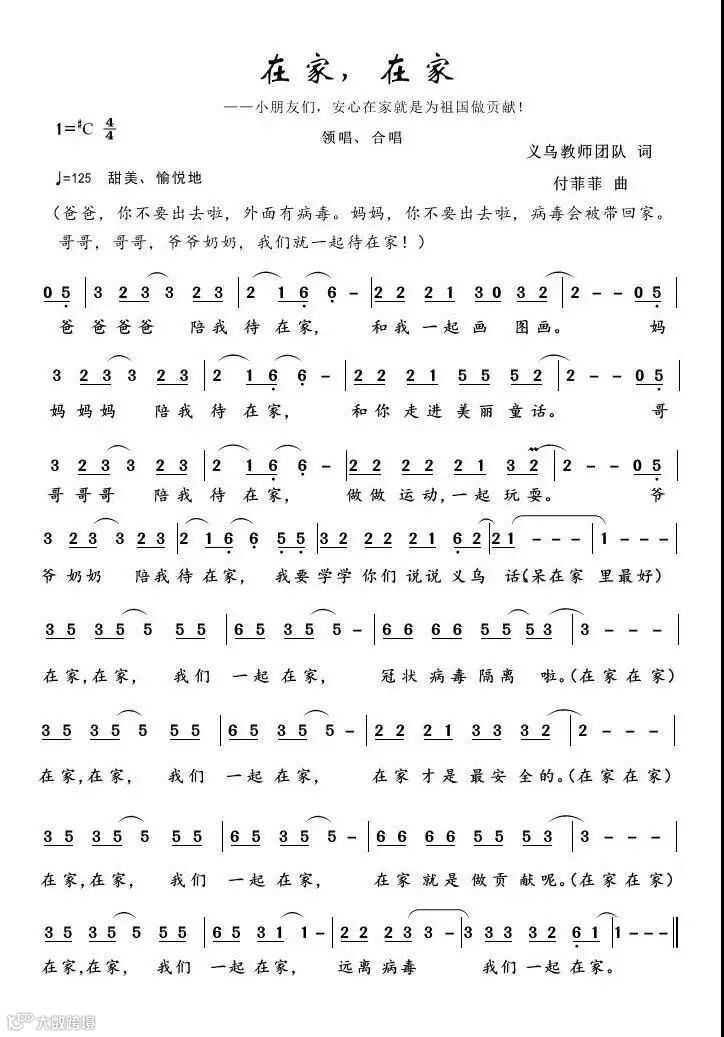 在家，在家
——小朋友们，安心在家就是为祖国做贡献！
1=#C 4/4
领唱、合唱
义乌教师团队 词
♩=125 甜美、愉悦地
付菲菲 曲
（爸爸，你不要出去啦，外面有病毒。妈妈，你不要出去啦，病毒会被带回家。
哥哥，哥哥，爷爷奶奶，我们就一起待在家！）
0 5 | 3 2 3 3 2 3 | 2 1 6 6 - | 2 2 2 1 3 0 3 2 | 2 - - 0 5 |
爸 爸爸爸 陪我 待在家， 和我一起画 图画。 妈
3 2 3 3 2 3 | 2 1 6 6 - | 2 2 2 1 5 5 5 2 | 2 - - 0 5 |
妈妈妈 陪我 待在家， 和你走进美丽童话。 哥
3 2 3 3 2 3 | 2 1 6 6 - | 2 2 2 2 2 1 3 2 | 2 - - 0 5 |
哥哥哥 陪我 待在家， 做做运动，一起玩耍。 爷
3 2 3 3 2 3 | 2 1 6 6 5 5 | 3 2 2 2 2 1 6 2 | 2 1 - - - | 1 - - - |
爷奶奶 陪我待在家， 我要学学你们说说义乌 话（呆在家 里最好）
3 5 3 5 5 5 5 | 6 5 3 5 5 - | 6 6 6 6 5 5 5 3 | 3 - - - |
在家，在家， 我们 一起在家， 冠状病毒隔离 啦。（在家在家）
3 5 3 5 5 5 5 | 6 5 3 5 5 - | 2 2 2 1 3 3 3 2 | 2 - - - |
在家，在家， 我们 一起在家， 在家才是最安全的。（在家在家）
3 5 3 5 5 5 5 | 6 5 3 5 5 - | 6 6 6 6 5 5 5 3 | 3 - - - |
在家，在家， 我们 一起在家， 在家就是做贡献呢。（在家在家）
3 5 3 5 5 5 5 | 6 5 3 1 1 - | 2 2 2 3 3 - | 3 3 3 3 2 6 1 | 1 - - - ||
在家，在家， 我们 一起在家， 远离病毒 我们一起在家。
大数跨境